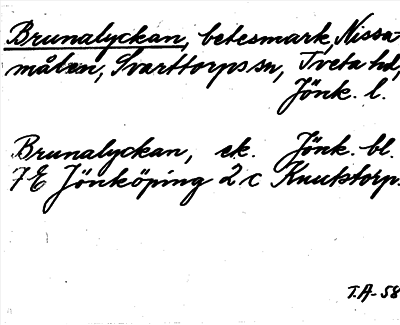 Brunalyckan, betesmark, Nissa-
målen, Svarttorps sn, Tveta hd,
Jönk. l.
Brunalyckan, ek. Jönk. bl.
7E Jönköping 2c Knutstorp.
T.A-58